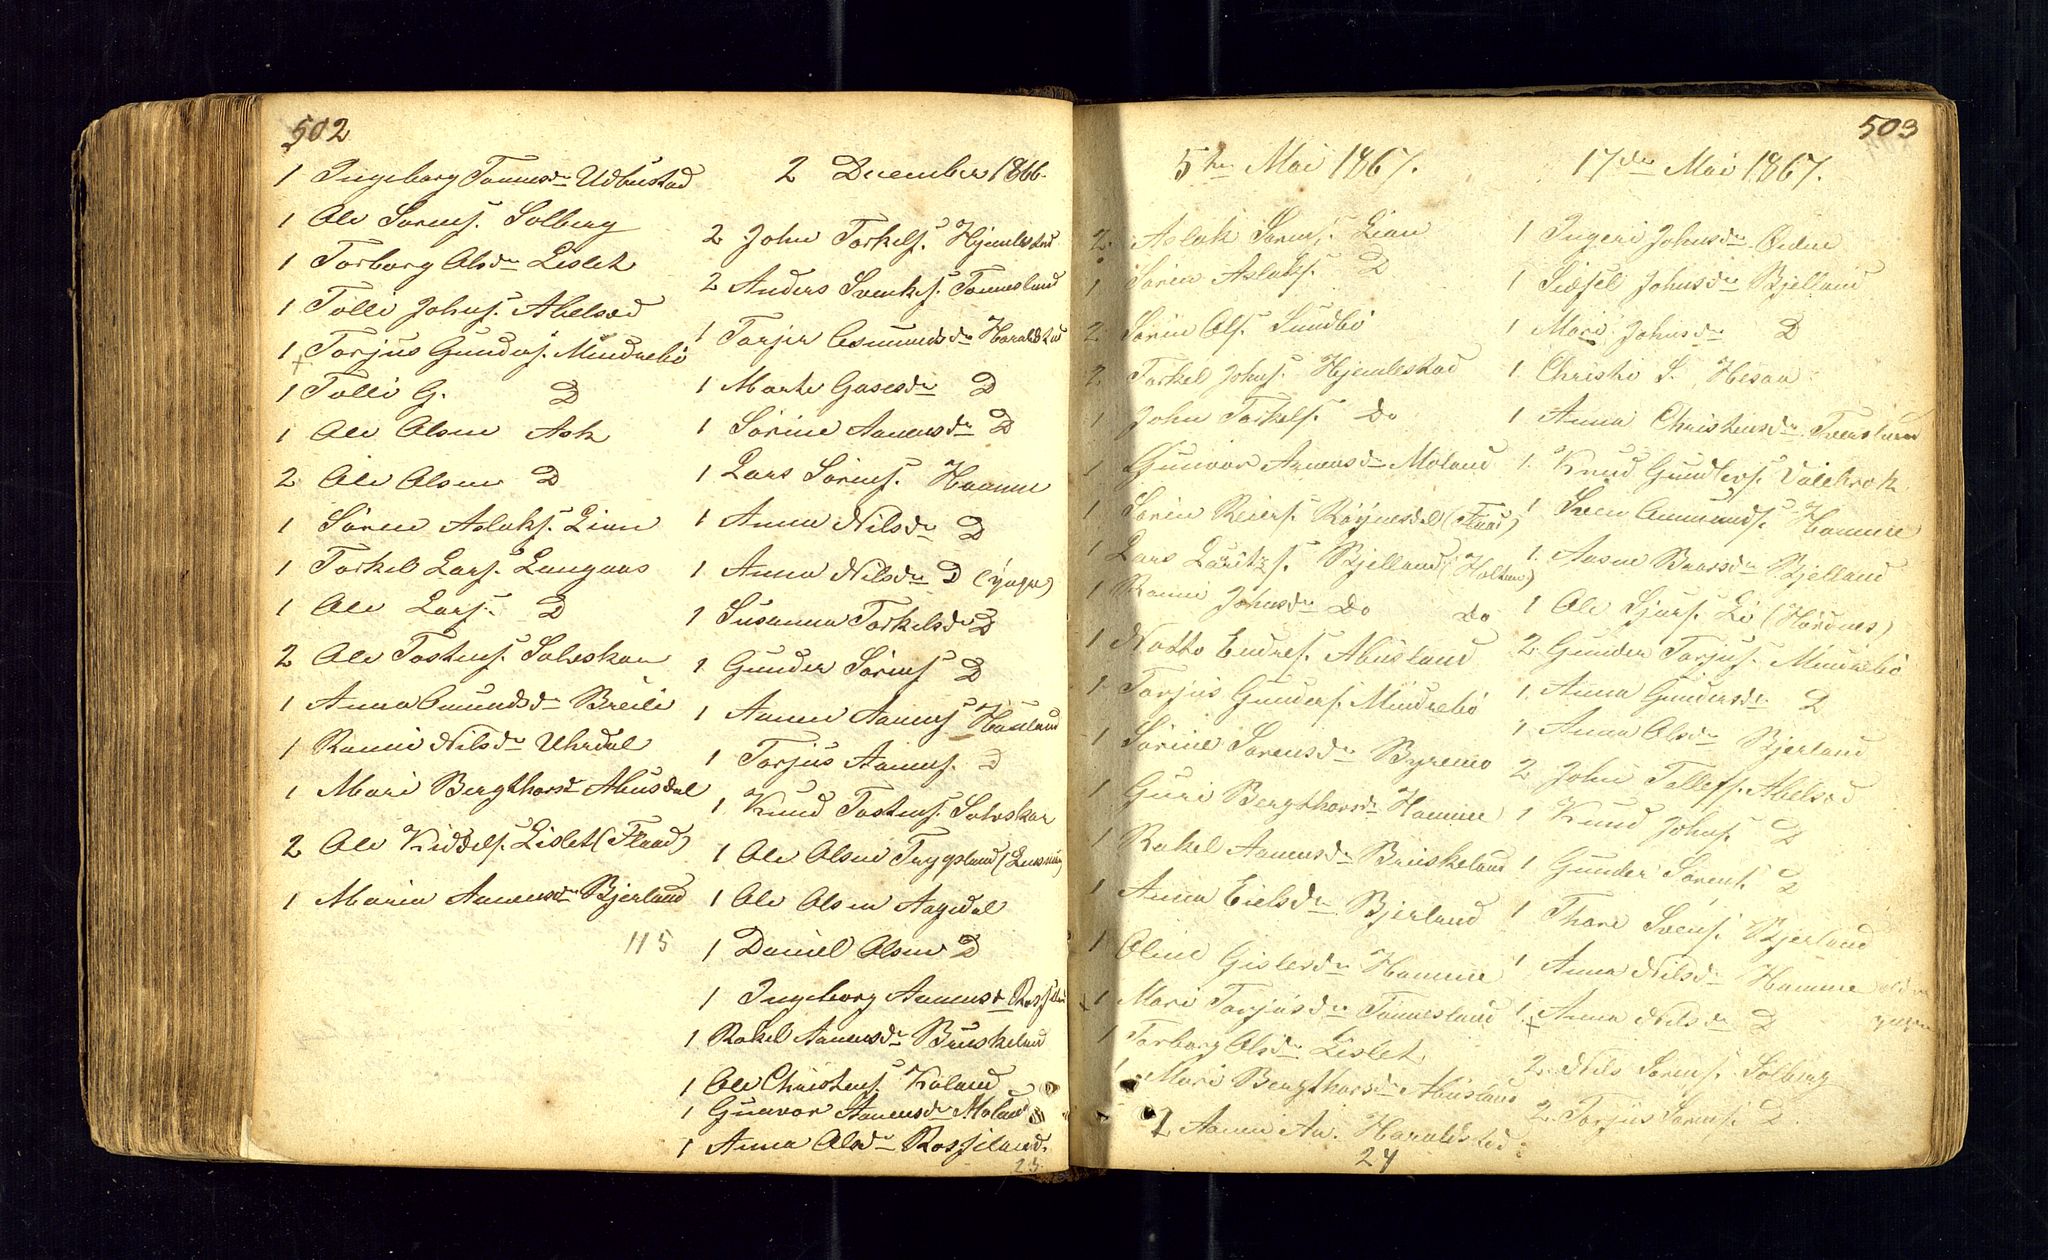 502
1 Ingeborg Tomesdr Udbustad
1 Ole Sørens. Solberg
1 Torborg Olsdr Lislet
1 Tolli Johns. Abelsød
1 Torjus Gunders. Mindrebø
1 Tolli G. D
1 Ole Olsen Ask
2 Ole Olsen D
1 Søren Aslaks. Lian
1 Torkel Lars. Langaas
1 Ole Lars. D
2 Ole Tostens. Solieskar
1 Anna Omundsdr Breili
1 Ranni Nilsdr Uhrdal
1 Mari Bergthorsdr Abusdal
2 Ole Kiddels. Lislet (Flaad)
1 Maria Aanensdr Bjerland
115
2 December 1866.
2 John Torkels. Hjemlestad
2 Anders Svenks. Tomesland
1 Torjer Osmundsdr Haraldstad
1 Marte Gasesdr D
1 Sørine Aanensdr D
1 Lars Sørens. Homme
1 Anna Nilsdr D
1 Anna Nilsdr D (yngre)
1 Susanna Torkelsdr D
1 Gunder Sørens D
1 Aanen Aanens Haaland
1 Torjus Aanens. D
1 Knud Tostens. Solieskar
1 Ole Olsen Trygsland
1 Ole Olsen Aagedal
1 Daniel Olsen D
1 Ingeborg Aanensdr
1 Rakel Aanensdr Bruskeland
1 Ole Christens. Kaland
1 Gunvor Aanensdr Moland
1 Anna Olsdr Rossiland.
23
503
5te Mai 1867.
2. Aslak Sørens. Lian
1 Søren Aslaks. D
2. Søren Ols. Sundbø
2. Torkel Johns. Hjemlestad
1 John Torkels. Do
1 Gunvor Aanensdr Moland
1 Søren Reiers. Røynesdal (Flaad)
1 Lars Lauritzs. Bjelland (Holtan)
1 Ranni Johnsdr Do Do
1 Notto Endres. Abusland
1 Torjus Gunders. Mindrebø
1 Sørine Sørensdr Byremo
1 Guri Bergthorsdr Homme
1 Rakel Aanensdr Bruskeland
1 Anna Eielsdr Bjerland
1 Oline Gislesdr Homme
1 Mari Torjusdr Tomesland
1 Torborg Olsdr Lislet
1 Mari Bergthorsdr Abusland
2 Aanen An. Haraldstad.
24
17de Mai 1867.
1 Ingeri Johnsdr Øidne
1 Sidsel Johnsdr Bjelland
1 Mari Johnsdr D
1. Christi S. Hesaa
1 Anna Christensdr Tversland
1. Knud Gundlevs. Valebrok
1 Sven Aamunds. Homme
1. Aasne Baarsdr Bjelland
1 Ole Sjurs. Lø (Hørdnes)
2. Gunder Torjus. Mindrebø
1. Anna Gundersdr D
1 Anna Olsdr Bjerland
2 John Tellefs. Abelsød
1 Knud Johns. D
1 Gunder Sørens. D
1 Thore Svens. Bjerland
1 Anna Nilsdr Homme ældre
1. Anna Nilsdr D yngre
2. Nils Sørens. Solberg
2. Torjus Sørens. D.